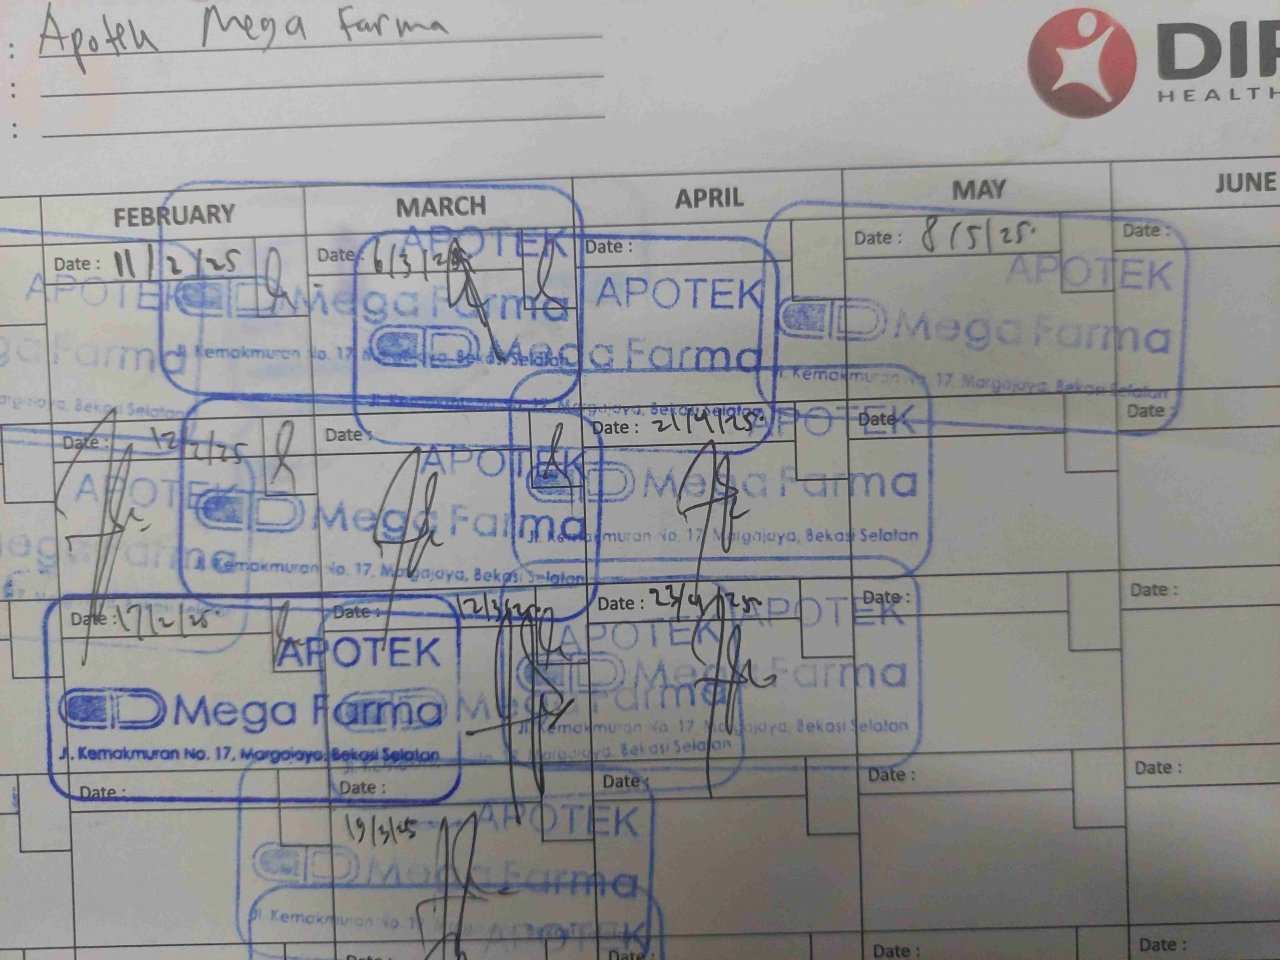 : Apotek Mega Farma
:
:
DIP
HEALTH
FEBRUARY MARCH APRIL MAY JUNE
Date : 11/2/25 Date : 6/3/25 Date : Date : 8/5/25 Date :
APOTEK APOTEK APOTEK APOTEK
Mega Farma Mega Farma Mega Farma
Jl. Kemakmuran No. 17, Margajaya, Bekasi Selatan
Jl. Kemakmuran No. 17, Margajaya, Bekasi Selatan
Date : 12/2/25 Date : Date : 21/4/25 Date : Date :
APOTEK APOTEK APOTEK
Mega Farma Mega Farma
Jl. Kemakmuran No. 17, Margajaya, Bekasi Selatan
Jl. Kemakmuran No. 17, Margajaya, Bekasi Selatan
Date : 17/2/25 Date : 12/3/25 Date : 23/4/25 Date :
APOTEK APOTEK APOTEK
Mega Farma Mega Farma
Jl. Kemakmuran No. 17, Margajaya, Bekasi Selatan
Date : Date : Date : Date : Date :
19/3/25 APOTEK
Mega Farma
Jl. Kemakmuran No. 17
APOTEK
Date : Date : Date : Date :